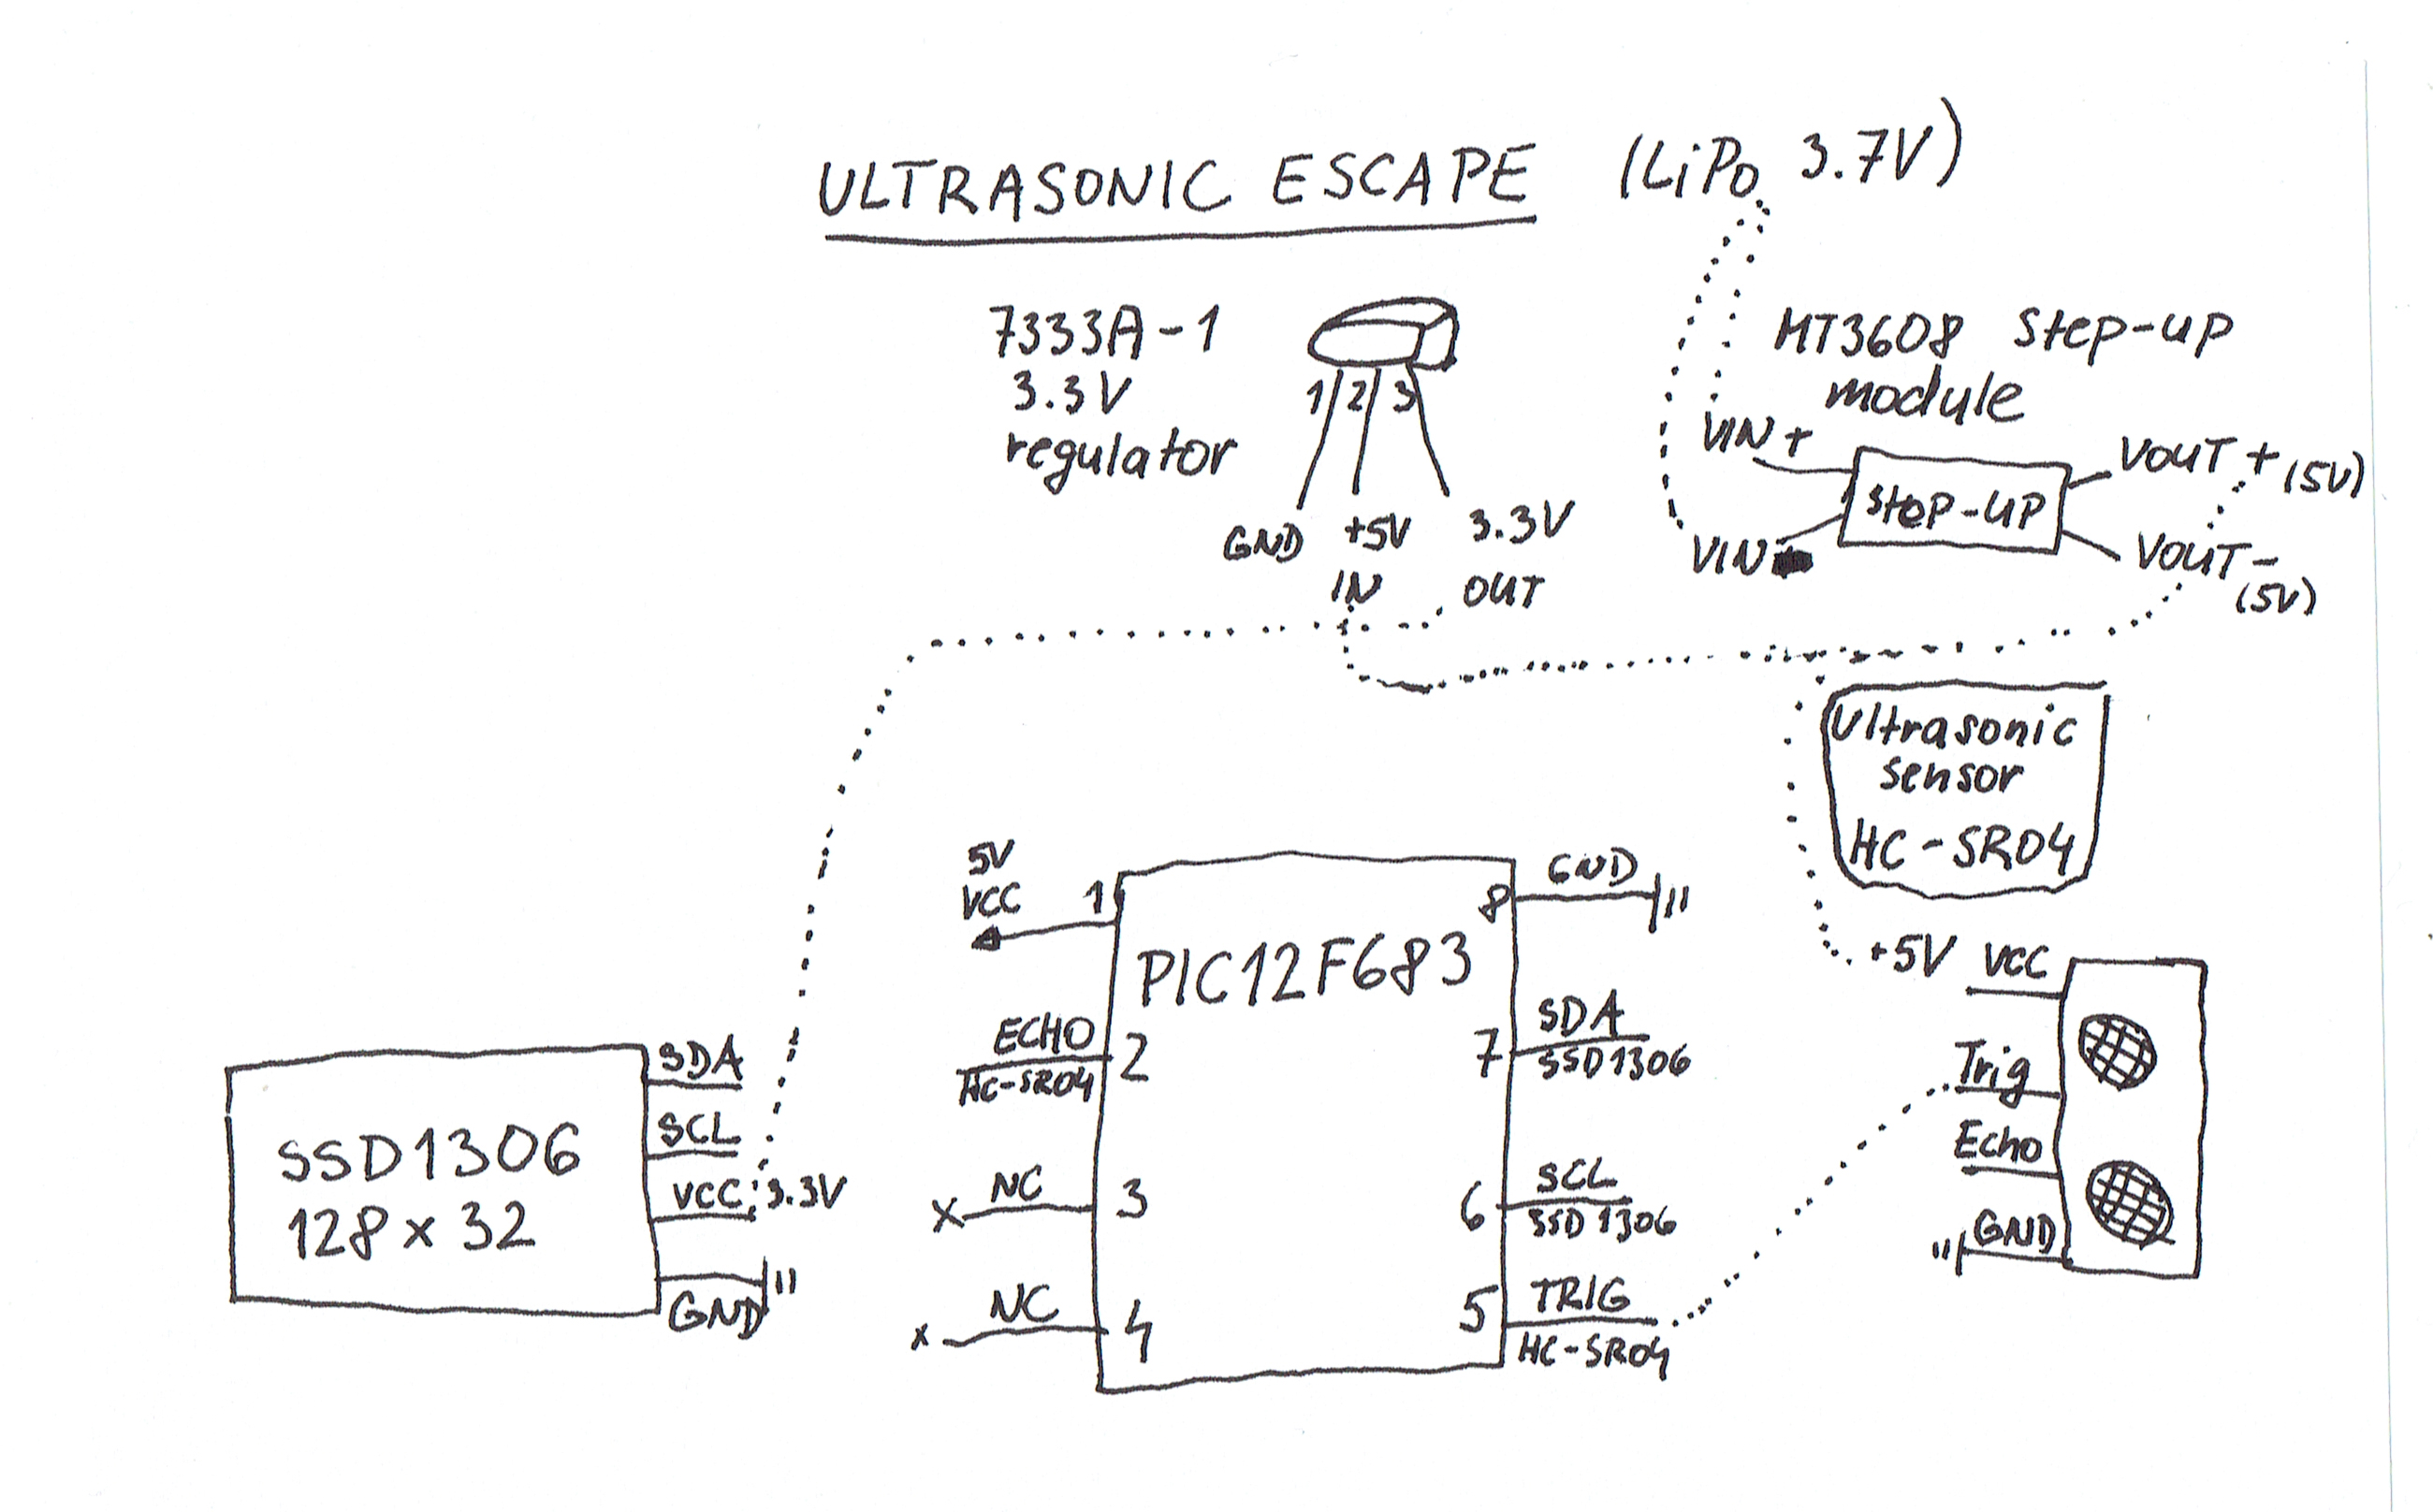 ULTRASONIC ESCAPE (LiPo 3.7V)
7333A-1
3.3V
regulator
1 2 3
GND +5V 3.3V
IN OUT
MT3608 Step-up
module
VIN +
VIN
Step-UP
VOUT + (5V)
VOUT -
(5V)
Ultrasonic
sensor
HC-SR04
5V
VCC 1
ECHO 2
HC-SR04
NC 3
x
NC 4
x
PIC12F683
8 GND
7 SDA
SSD1306
6 SCL
SSD1306
5 TRIG
HC-SR04
SSD1306
128 x 32
SDA
SCL
VCC 3.3V
GND
+5V VCC
Trig
Echo
GND